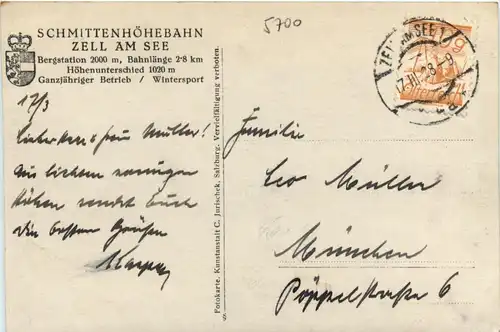 SCHMITTENHÖHEBAHN
ZELL AM SEE
Bergstation 2000 m, Bahnlänge 2·8 km
Höhenunterschied 1020 m
Ganzjähriger Betrieb / Wintersport
5700
ZELL AM SEE 1
17/3
Lieber Herr u Frau Müller!
Aus lichten sonnigen
Höhen sendet Euch
die besten Grüßen
Fotokarte. Kunstanstalt C. Jurischek, Salzburg. Vervielfältigung verboten.
Familie
Leo Müller
München
Pöppelstraße 6